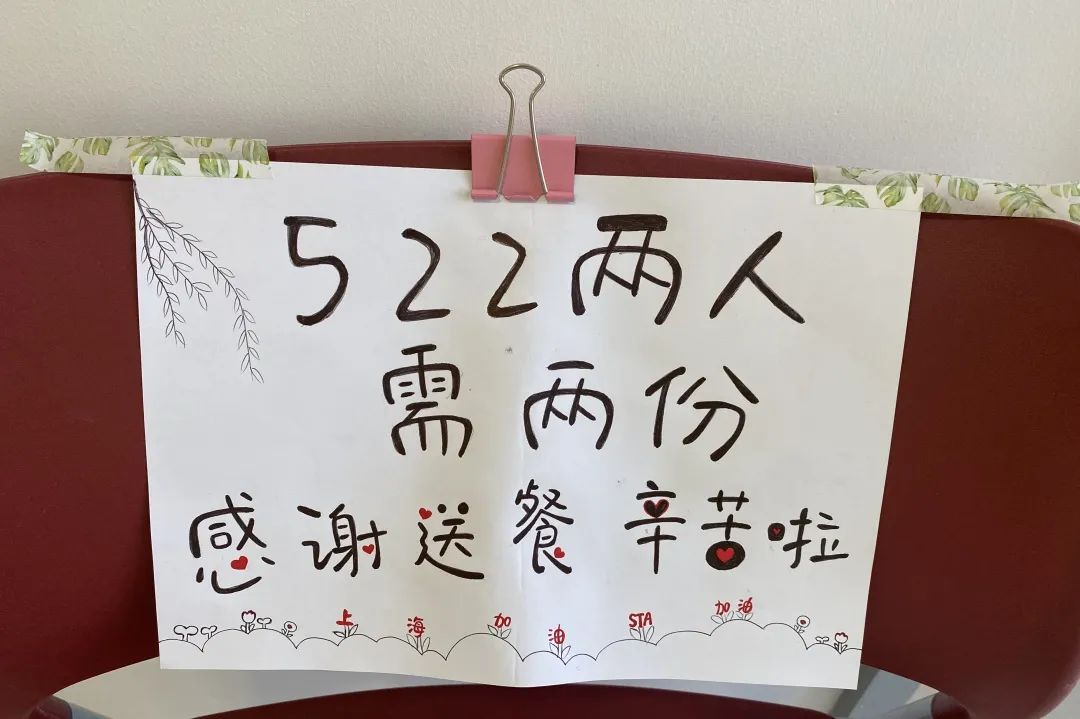 522两人
需两份
感谢送餐辛苦啦
上海加油 STA 加油